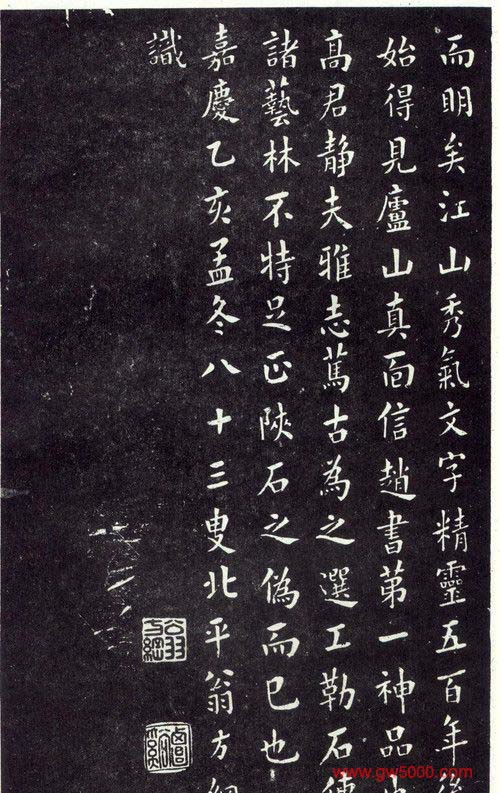 而明矣江山秀氣文字精靈五百年後
始得見廬山真面信趙書第一神品也
高君静夫雅志篤古為之選工勒石傳
諸藝林不特足正陝石之偽而已也
嘉慶乙亥孟冬八十三叟北平翁方綱
識
翁方綱
www.gw5000.com